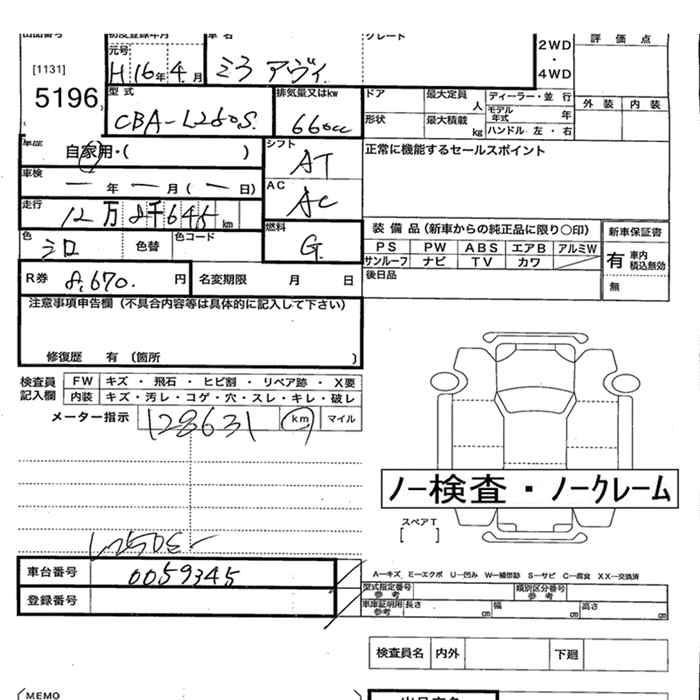 出品番号 初度登録年月 車名 グレード
[1131] 5196
元号 H 16年 4月 ミラ アヴィ
2WD・4WD
評価点
外装 内装
型式 CBA-L250S
排気量又はkw 660cc
ドア 最大定員 人 ディーラー・並行
モデル年式 年
形状 最大積載 kg ハンドル 左・右
自家用・( )
シフト AT
正常に機能するセールスポイント
車検 ー年ー月(ー日)
AC AC
走行 12万8千645km
燃料 G
色 シロ 色替 色コード
装備品(新車からの純正品に限り○印)
PS PW ABS エアB アルミW
サンルーフ ナビ TV カワ
後日品
新車保証書
有 車内積込無効
無
R券 8,670円 名変期限 月 日
注意事項申告欄(不具合内容等は具体的に記入して下さい)
修復歴 有 (箇所 )
検査員記入欄
FW キズ・飛石・ヒビ割・リペア跡・X要
内装 キズ・汚レ・コゲ・穴・スレ・キレ・破レ
メーター指示 128631 km マイル
ノー検査・ノークレーム
スペアT
[ ]
L250S-
車台番号 0059345
登録番号
A―キズ E―エクボ U―凹み W―補修跡 S―サビ C―腐食 XX―交換済
型式指定番号 参考 類別区分番号 参考
車庫証明用 参考 長さ cm 幅 cm 高さ cm
検査員名 内外 下廻
MEMO